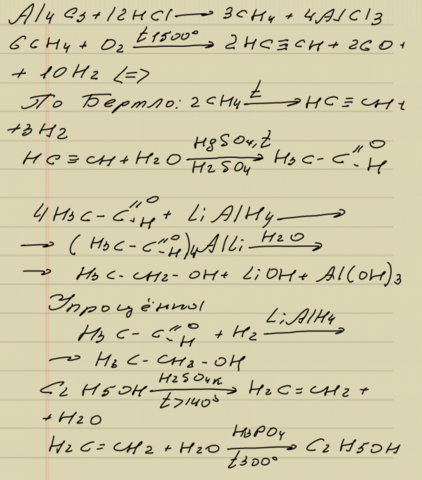 Al4C3 + 12HCl → 3CH4 + 4AlCl3
6CH4 + O2 t1500° → 2HC≡CH + 2CO +
+ 10H2 (=>
По Бертло: 2CH4 t → HC≡CH +
+3H2
HC≡CH + H2O HgSO4, t → H2SO4 H3C-C=O -H
4H3C-C=O -H + LiAlH4 →
→ (H3C-C=O -H)4AlLi H2O →
→ H3C-CH2-OH + LiOH + Al(OH)3
Упрощённо
H3C-C=O -H + H2 LiAlH4 →
→ H3C-CH2-OH
C2H5OH H2SO4к → t>140° H2C=CH2 +
+ H2O
H2C=CH2 + H2O H3PO4 → t300° C2H5OH